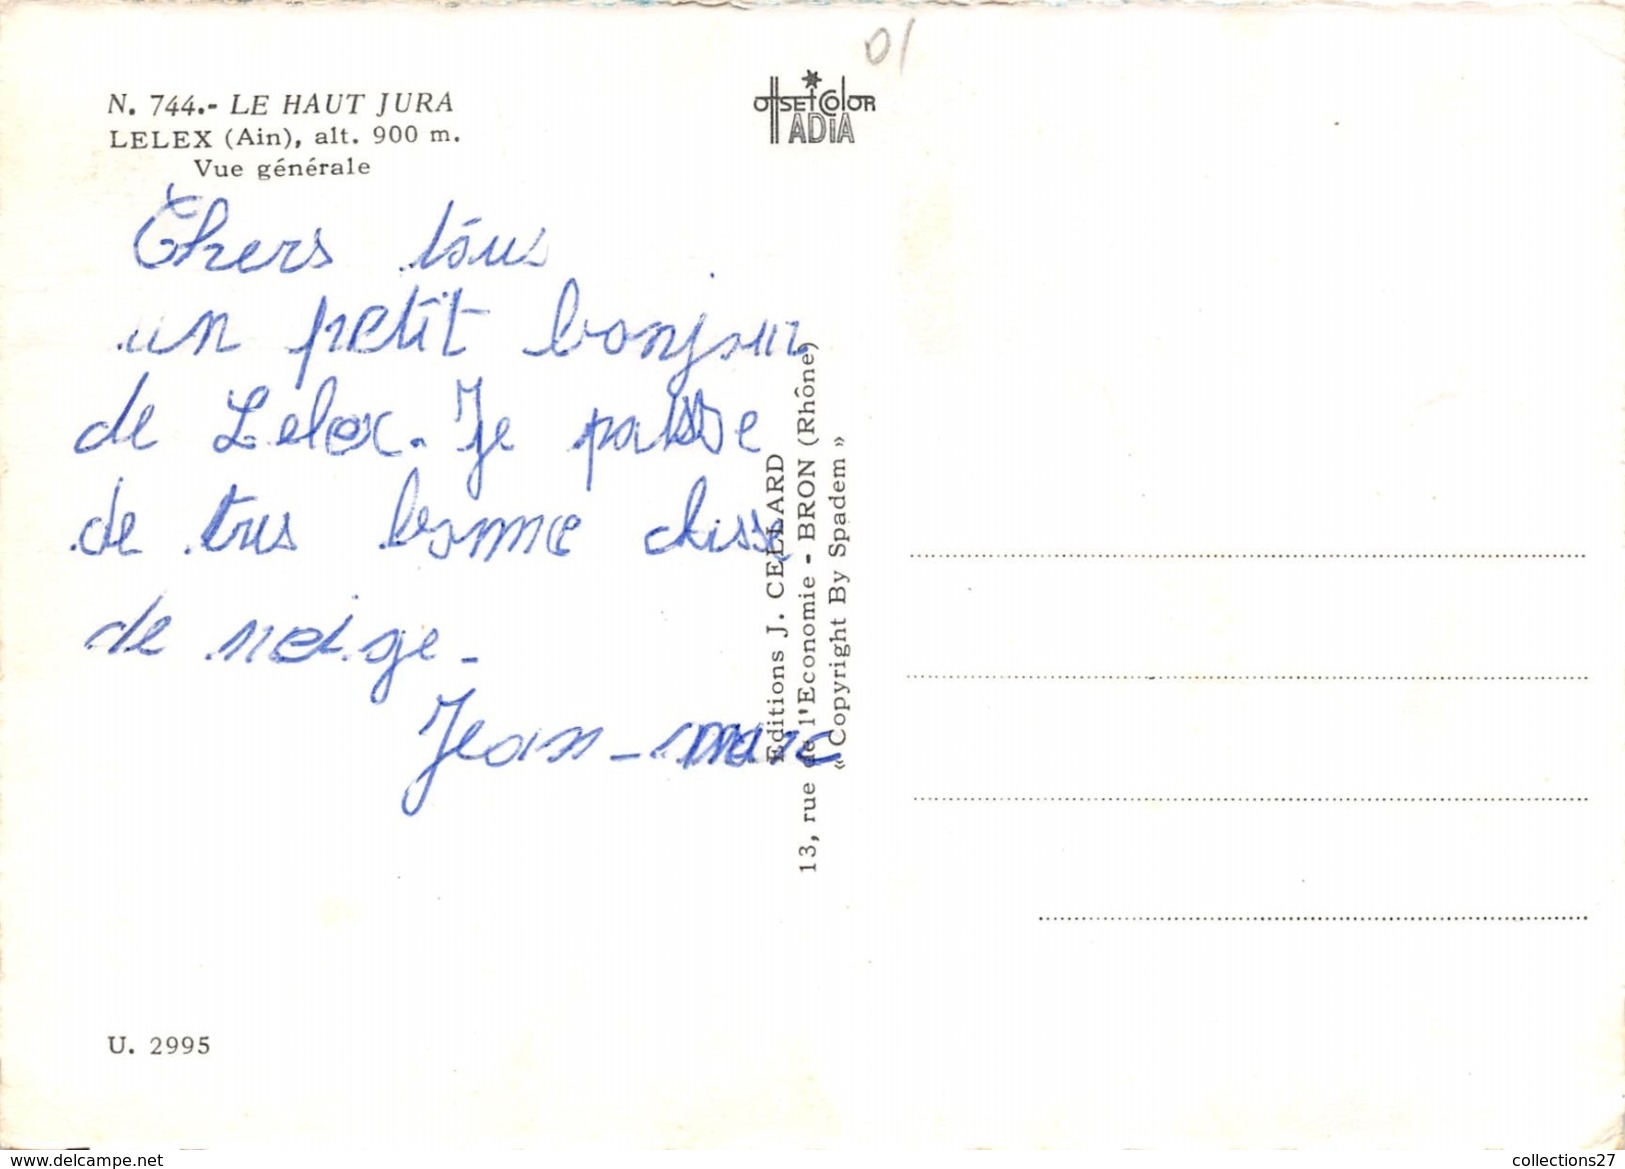 N. 744.- LE HAUT JURA
LELEX (Ain), alt. 900 m.
Vue générale
OFFSET COLOR
ADIA
01
Chers tous
un petit bonjour
de Lelex. Je passe
de trus bonne clisse
de neige.
Jean-marc
Editions J. CELLARD
13, rue de l'Economie - BRON (Rhône)
« Copyright By Spadem »
U. 2995
www.delcampe.net
collections27